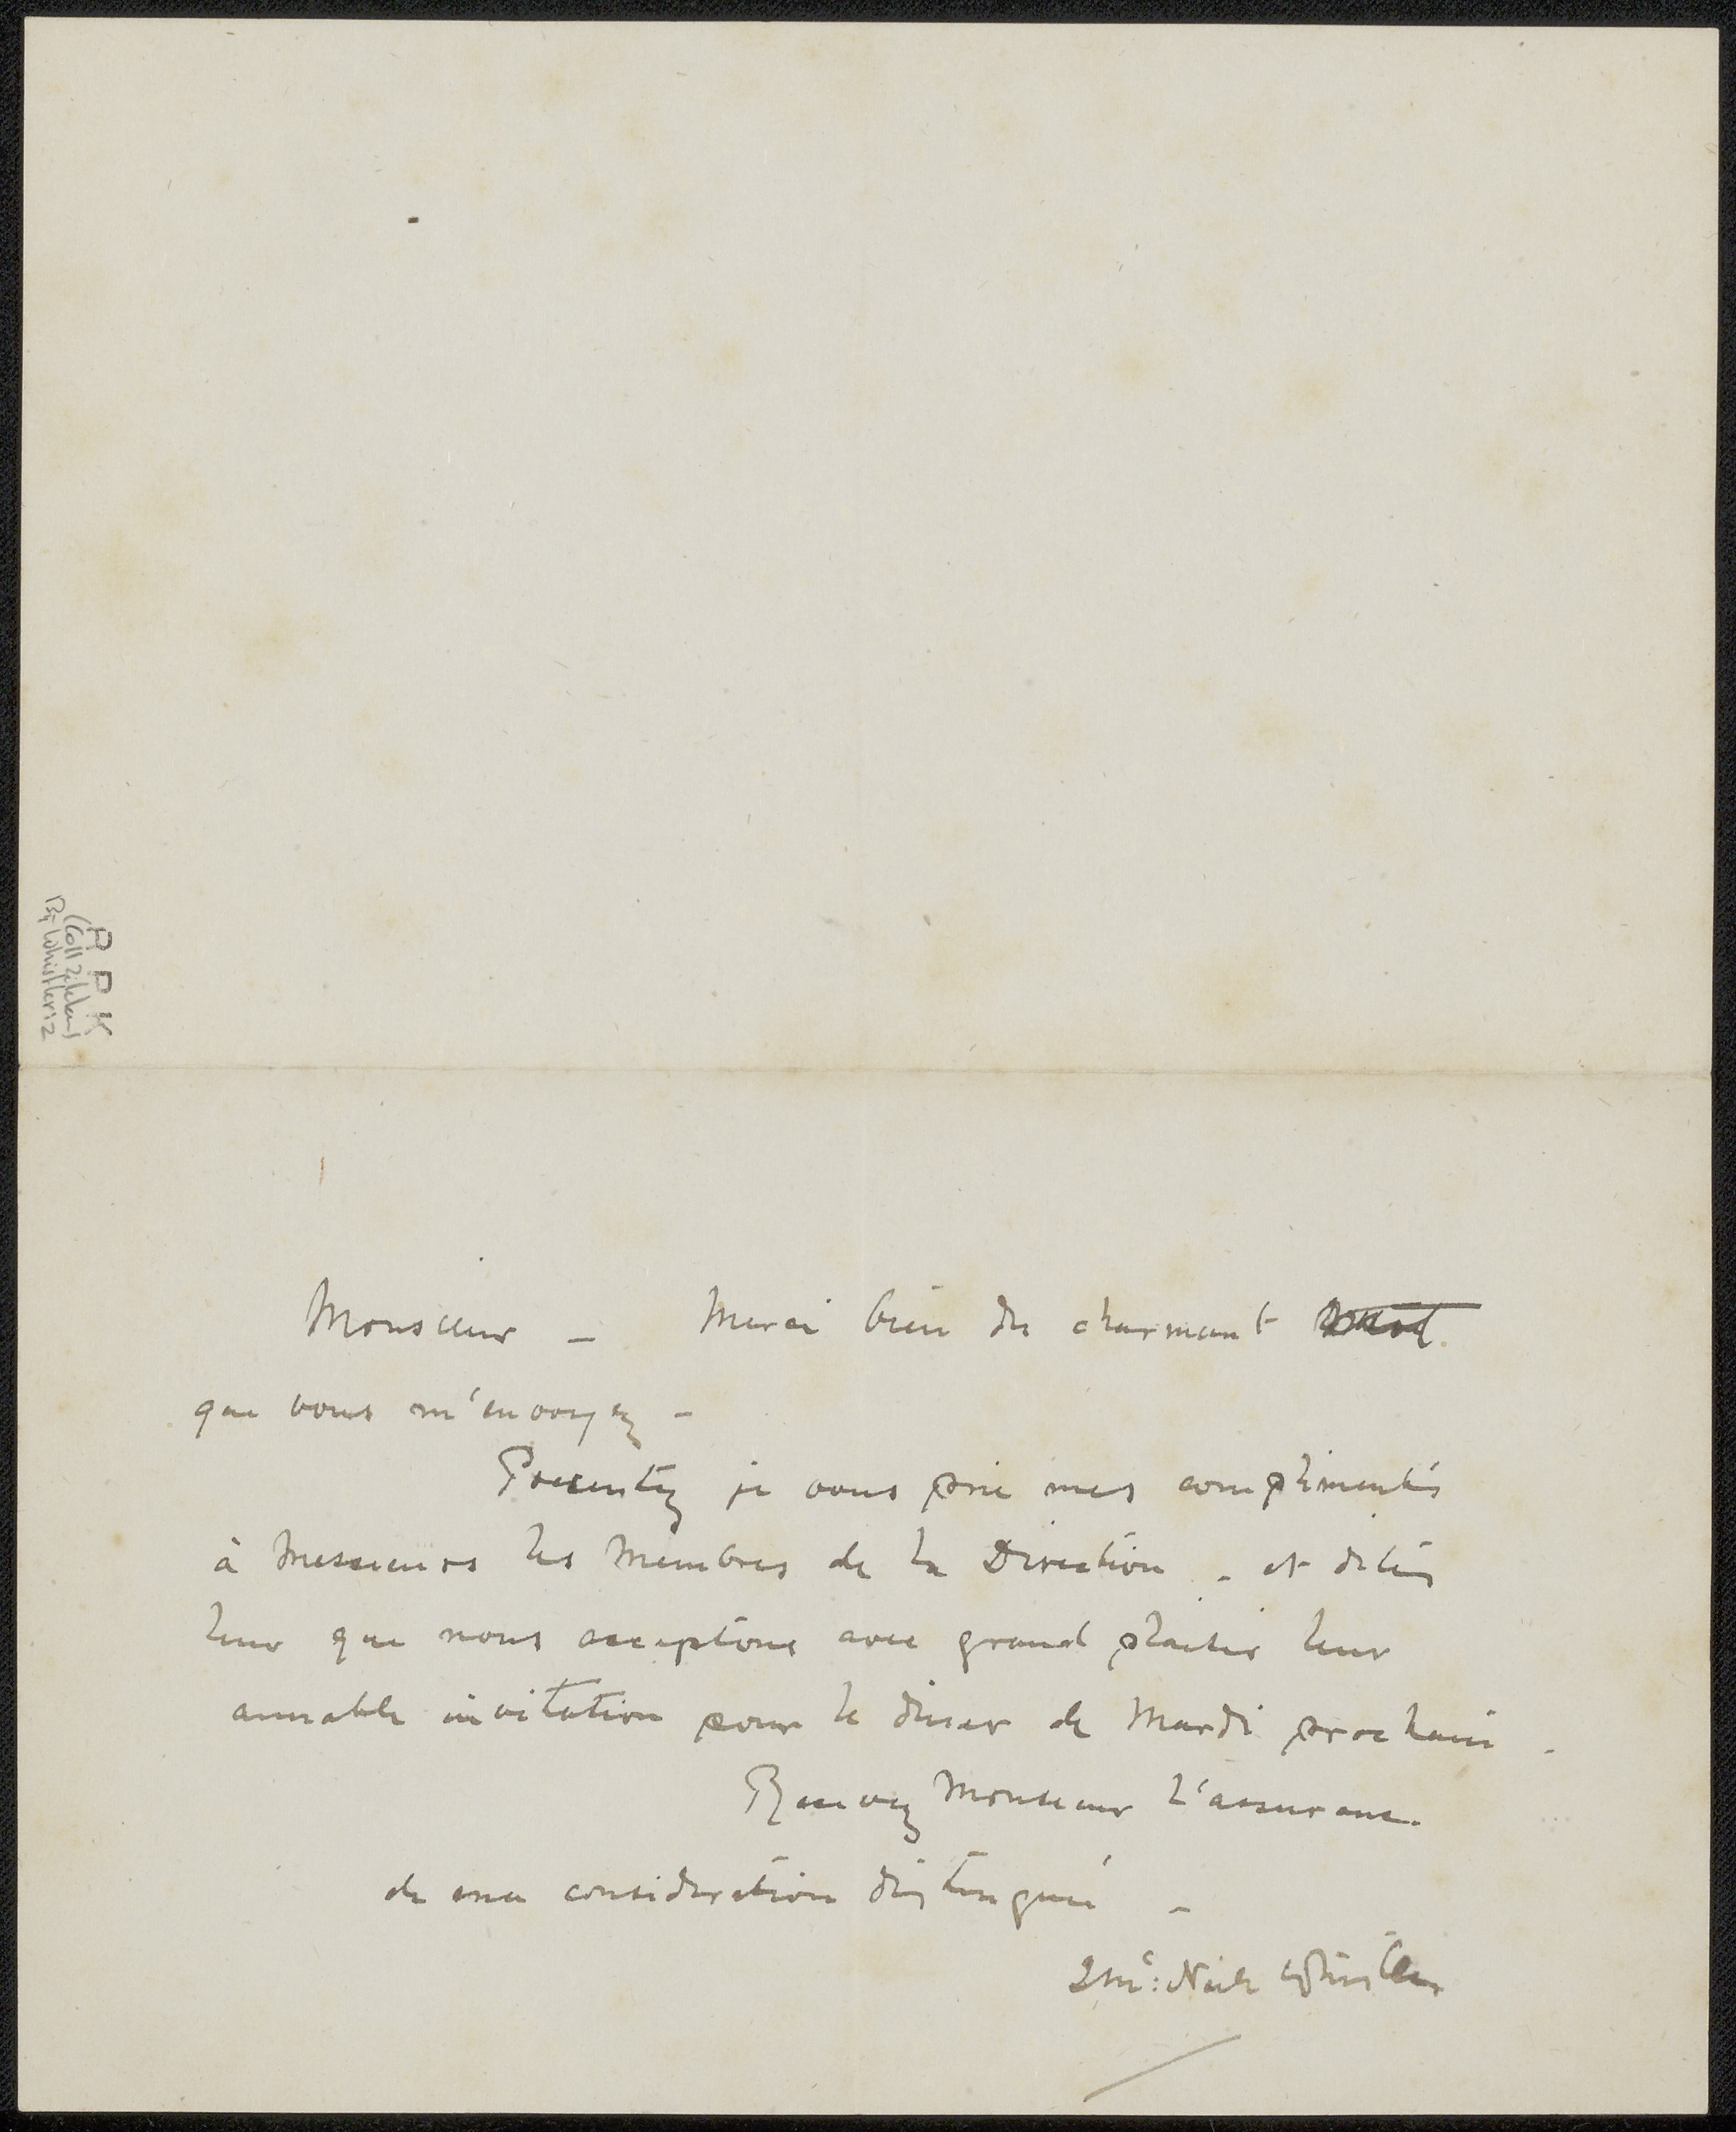 Monsieur – Merci bien du charmant
que vous m'envoyez –
Presentez je vous prie mes compliments
à Messieurs les Membres de la Direction – et dites
leur que nous acceptons avec grand plaisir leur
aimable invitation pour le diner de Mardi prochain –
Recevez Monsieur l'assurance
de ma consideration distingué –
J Mc: Neill Whistler
R P K
(Coll Zilcken)
Bij Whistler 12